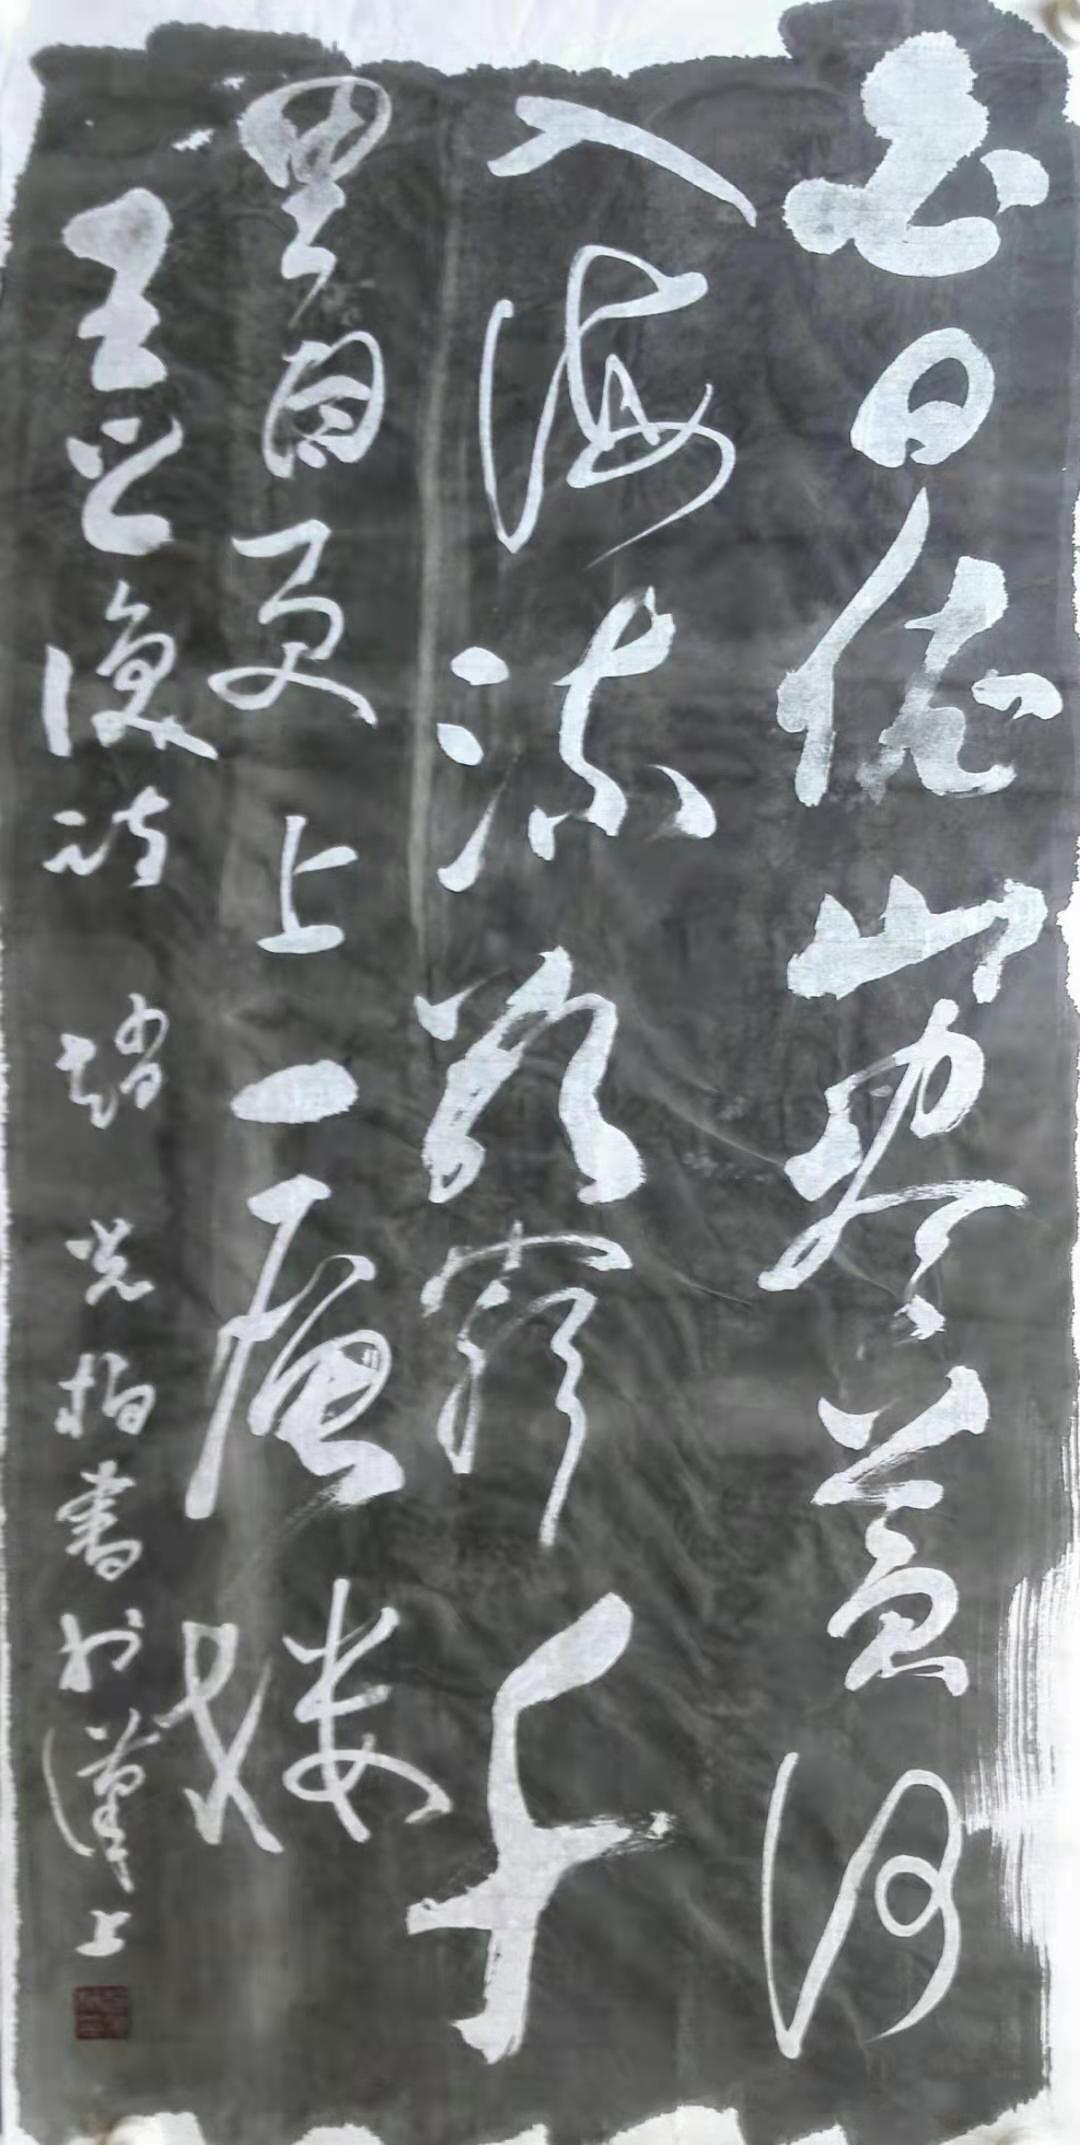 白日依山尽黄河
入海流欲穷千
里目更上一层楼
王之涣诗 赵光柏书于汉上